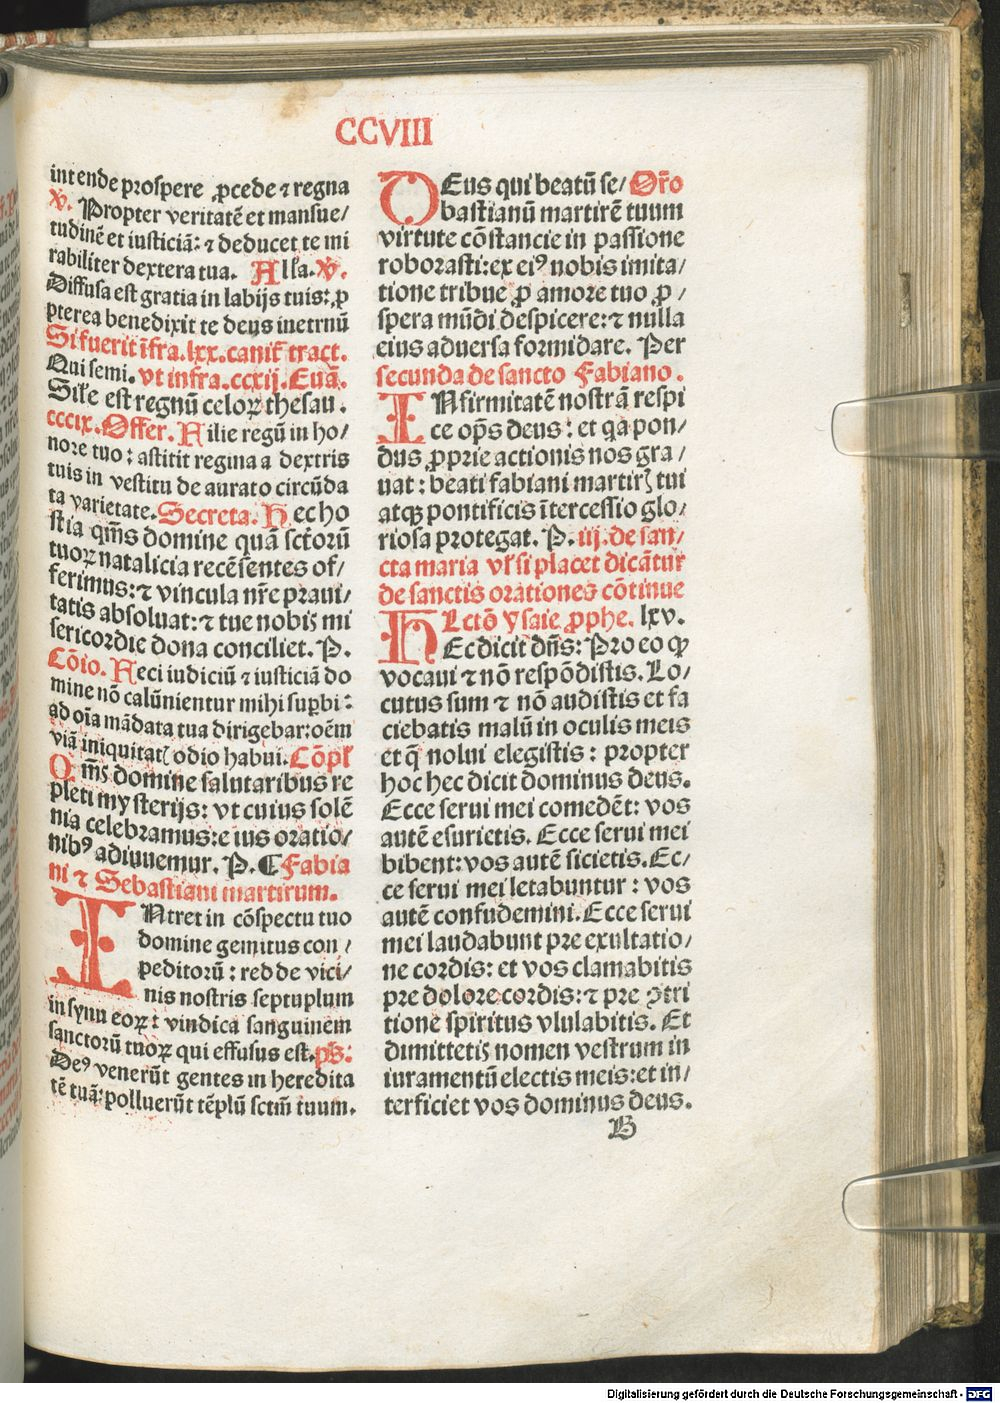 CCVIII
intende prospere ꝓcede ⁊ regna
℣. Propter veritatē et mansue/
tudinē et iusticiā: ⁊ deducet te mi
rabiliter dextera tua. Alľa. ℣.
Diffusa est gratia in labijs tuis: ꝓ
pterea benedixit te deus inetrnū
Si fuerit īfra .lxx. canit̄ tract.
Qui semi. vt infra .ccxij. Euā.
Sile est regnū celoꝝ thesau.
cccix. Offer. Filie regū in ho/
nore tuo: astitit regina a dextris
tuis in vestitu de aurato circūda
ta varietate. Secreta. Hec ho
stia qm̄s domine quā sctōrū
tuoꝝ natalicia recēsentes of/
ferimus: ⁊ vincula nr̄e praui/
tatis absoluat: ⁊ tue nobis mi
sericordie dona conciliet. P.
Cōio. Feci iudiciū ⁊ iusticiā do
mine nō calūnientur mihi suꝑbi:
ad oīa mādata tua dirigebar: oēm
viā iniquitatꝭ odio habui. Cōpľ
Qm̄s domine salutaribus re
pleti mysterijs: vt cuius solē
nia celebramus: eius oratio/
nibꝰ adiuuemur. P. ¶ Fabia
ni ⁊ Sebastiani martirum.
INtret in cōspectu tuo
domine gemitus con/
peditorū: redde vici/
nis nostris septuplum
in synu eoꝝ: vindica sanguinem
sanctorū tuoꝝ qui effusus est. ps̄:
Deꝰ venerūt gentes in heredita
tē tuā: polluerūt tēplū sctm̄ tuum.
DEus qui beatū se/ Or̄o
bastianū martirē tuum
virtute cōstancie in passione
roborasti: ex eiꝰ nobis imita/
tione tribue ꝓ amore tuo ꝓ/
spera mūdi despicere: ⁊ nulla
eius aduersa formidare. Per
secunda de sancto Fabiano.
INfirmitatē nostrā respi
ce op̄s deus: et qa pon/
dus ꝓprie actionis nos gra/
uat: beati fabiani martirꝭ tui
atqꝫ pontificis ītercessio glo/
riosa protegat. P. iij. de san/
cta maria vľ si placet dicātur
de sanctis orationes cōtinue
Lctō ysaie ꝓphe. lxv.
HEc dicit dn̄s: Pro eo ꝙ
vocaui ⁊ nō respōdistis. Lo/
cutus sum ⁊ nō audistis et fa
ciebatis malū in oculis meis
et q̄ nolui elegistis: propter
hoc hec dicit dominus deus.
Ecce serui mei comedēt: vos
autē esurietis. Ecce serui mei
bibent: vos autē sicietis. Ec/
ce serui mei letabuntur: vos
autē confudemini. Ecce serui
mei laudabunt pre exultatio/
ne cordis: et vos clamabitis
pre dolore cordis: ⁊ pre ꝯtri
tione spiritus vlulabitis. Et
dimittetis nomen vestrum in
iuramentū electis meis: et in/
terficiet vos dominus deus.
B
Digitalisierung gefördert durch die Deutsche Forschungsgemeinschaft - DFG